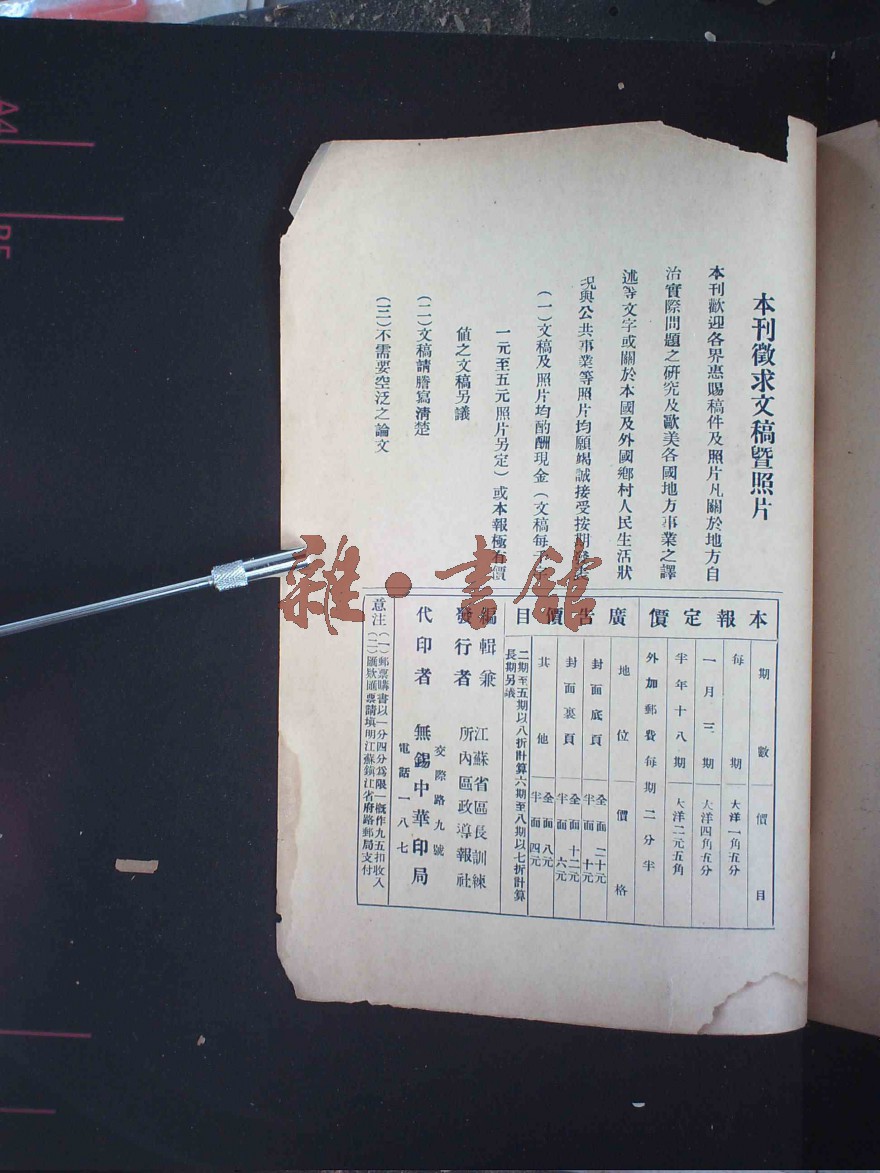 本刊徵求文稿暨照片
本刊歡迎各界惠賜稿件及照片凡關於地方自
治實際問題之研究及歐美各國地方事業之譯
述等文字或關於本國及外國鄉村人民生活狀
況與公共事業等照片均願竭誠接受按期發表
(一)文稿及照片均酌酬現金(文稿每千字
一元至五元照片另定)或本報極有價
値之文稿另議
(二)文稿請謄寫清楚
(三)不需要空泛之論文
本報定價
期數 價目
每期 大洋一角五分
一月三期 大洋四角五分
半年十八期 大洋二元五角
外加郵費每期二分半
廣告價目
地位 價格
封面底頁 全面二十元
半面十元
封面裏頁 全面十二元
半面六元
其他 全面八元
半面四元
二期至五期以八折計算六期至八期以七折計算
長期另議
編輯兼
發行者
江蘇省區長訓練
所內區政導報社
代印者 無錫中華印局
交際路九號
電話一八七
注意
(一)郵票購書以一分四分爲限一概作九五扣收入
(二)匯欵匯票請填明江蘇鎮江省府路郵局支付
雜·書館
A4